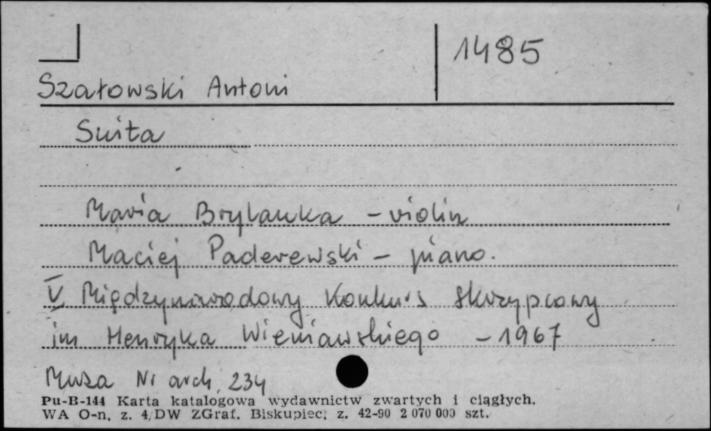 1485
Szałowski Antoni
Suita
Maria Brylanka - violin
Maciej Paderewski - piano.
V Międzynarodowy Konkurs Skrzypcowy
im Henryka Wieniawskiego - 1967
Muza Nr arch. 234
Pu-B-144 Karta katalogowa wydawnictw zwartych i ciągłych.
WA O-n, z. 4/DW ZGraf. Biskupiec; z. 42-90 2 070 000 szt.